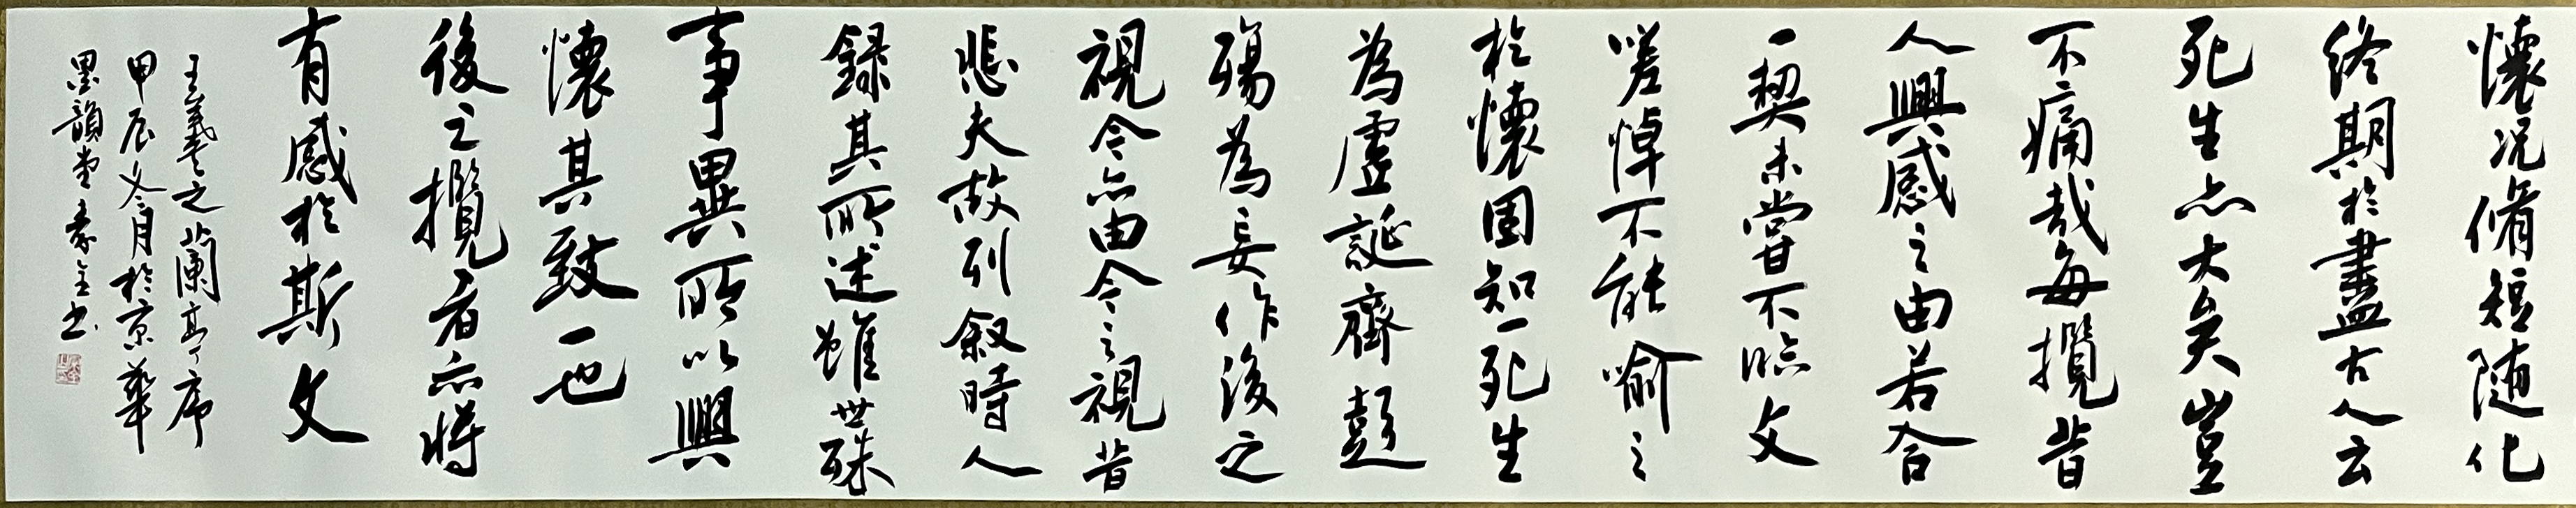 懷況脩短随化
終期於盡古人云
死生亦大矣豈
不痛哉每攬昔
人興感之由若合
一契未嘗不臨文
嗟悼不能喻之
於懷固知一死生
為虛誕齊彭
殤為妄作後之
視今亦由今之視昔
悲夫故列叙時人
録其所述雖世殊
事異所以興
懷其致一也
後之攬者亦將
有感於斯文
王羲之蘭亭序
甲辰冬月於京華
墨韻堂 書